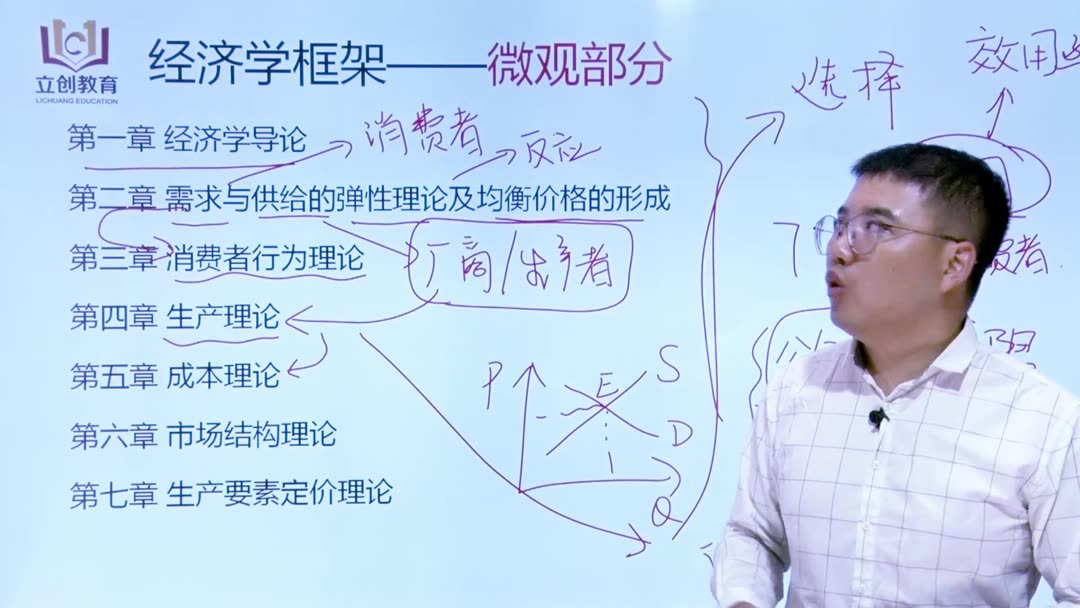 立创教育
LICHUANG EDUCATION
经济学框架——微观部分
选择
效用
第一章 经济学导论
消费者
反应
第二章 需求与供给的弹性理论及均衡价格的形成
第三章 消费者行为理论
厂商/生产者
费者
第四章 生产理论
第五章 成本理论
P
E
S
D
Q
第六章 市场结构理论
第七章 生产要素定价理论